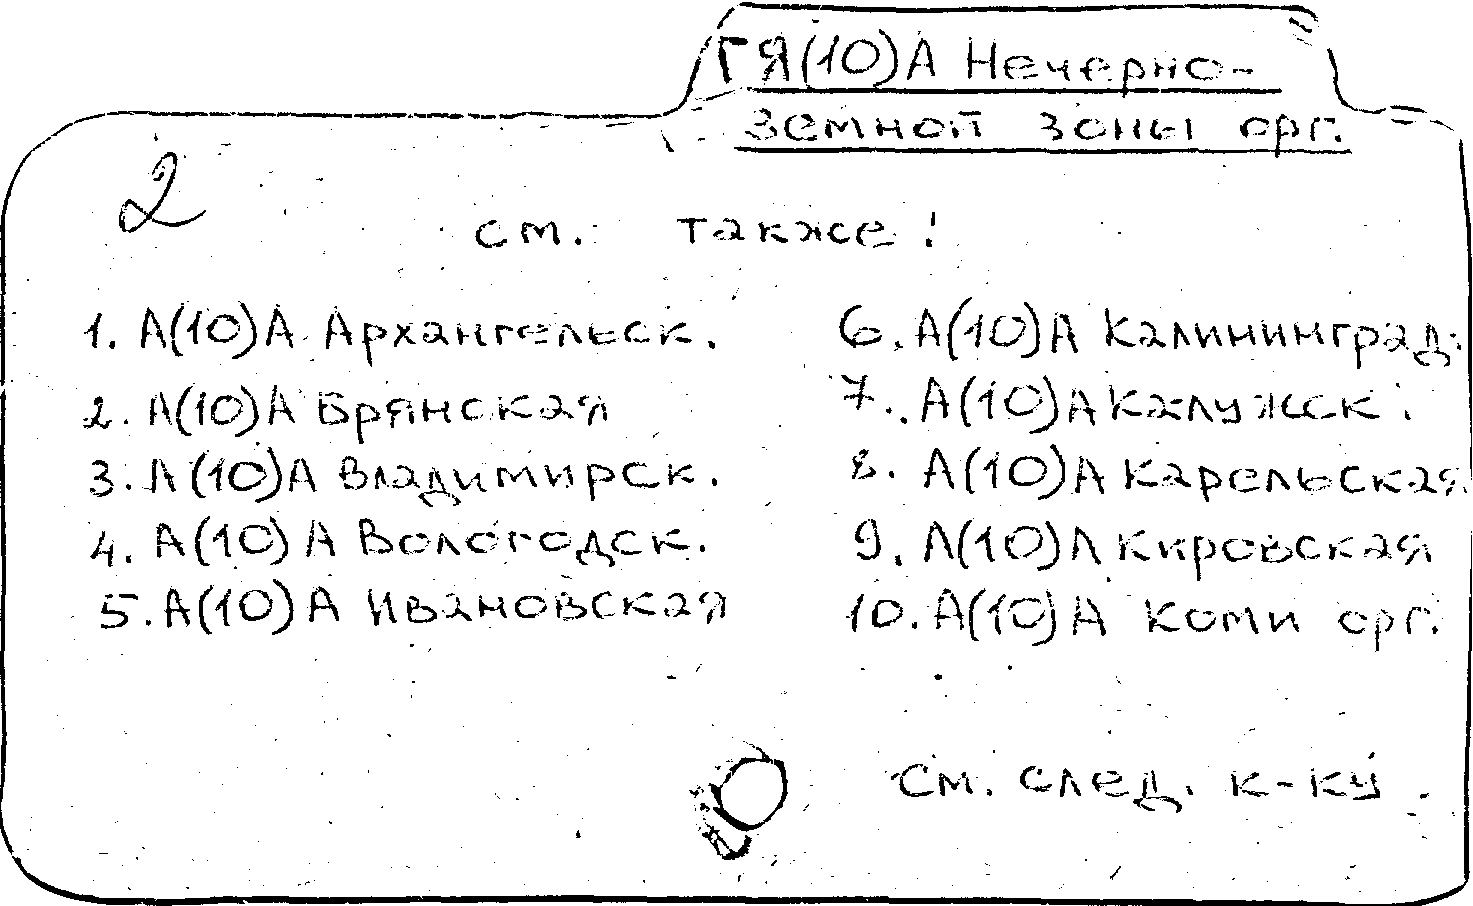 ГЯ(10)А Нечерно-
земной зоны орг.
2
см. также!
1. А(10)А Архангельск.
2. А(10)А Брянская
3. А(10)А Владимирск.
4. А(10)А Вологодск.
5. А(10)А Ивановская
6. А(10)А Калининград.
7. А(10)А Калужск.
8. А(10)А Карельская
9. А(10)А Кировская
10. А(10)А Коми орг.
См. след. к-ку.